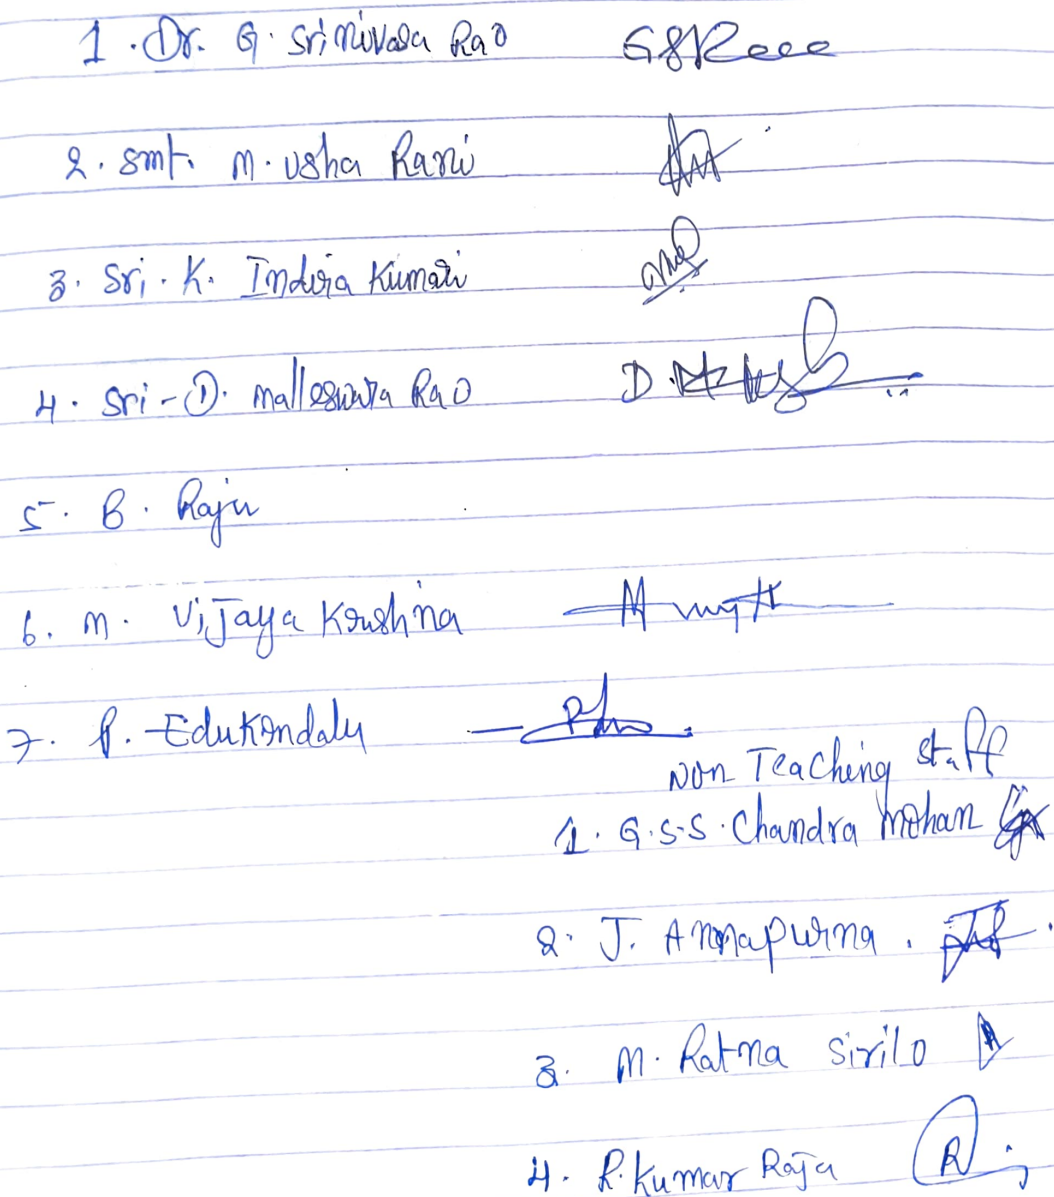 1. Dr. G. Srinivasa Rao
2. Smt. M. Usha Rani
3. Sri. K. Indira Kumari
4. Sri - D. Malleswara Rao
5. B. Raju
6. M. Vijaya Krushna
7. P. Edukondalu
Non Teaching staff
1. G.S.S. Chandra Mohan
2. J. Annapurna.
3. M. Ratna Sirilo
4. R. Kumar Raja